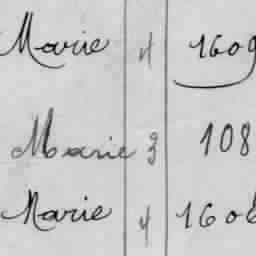 Marie 4 1609
Marie 3 108
Marie 4 1606